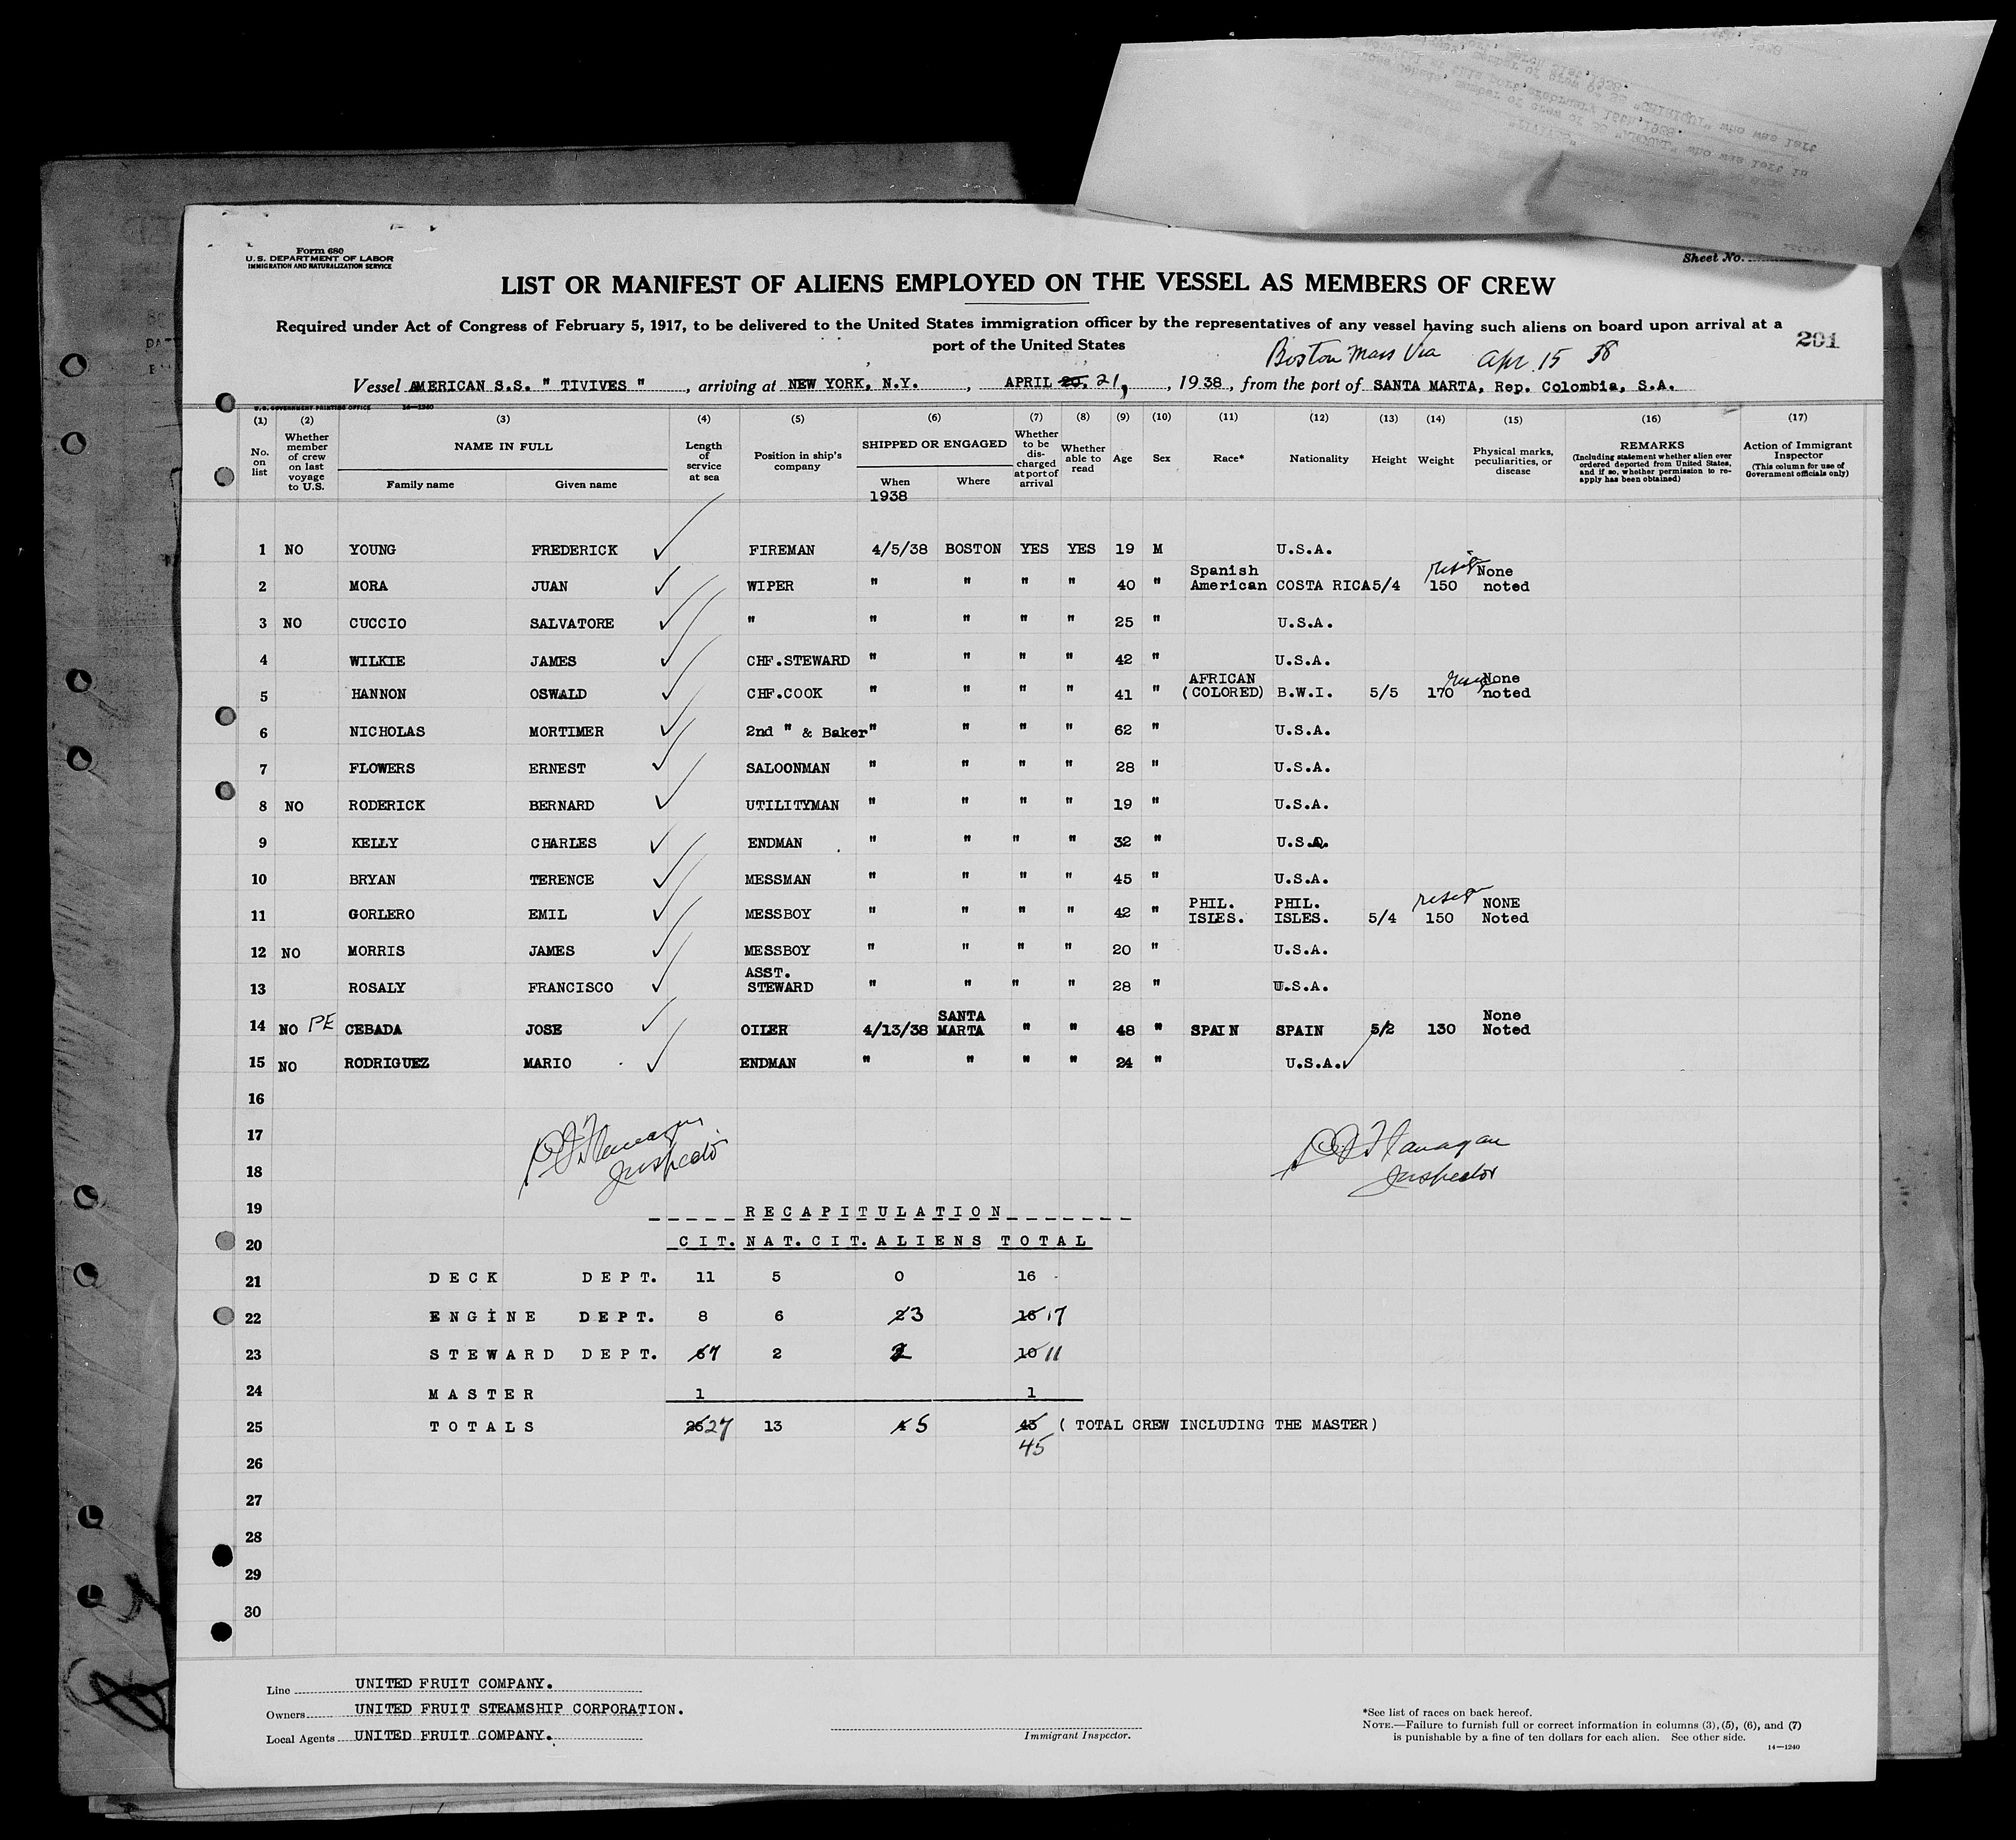 Form 680
U. S. DEPARTMENT OF LABOR
IMMIGRATION AND NATURALIZATION SERVICE
Sheet No.
LIST OR MANIFEST OF ALIENS EMPLOYED ON THE VESSEL AS MEMBERS OF CREW
Required under Act of Congress of February 5, 1917, to be delivered to the United States immigration officer by the representatives of any vessel having such aliens on board upon arrival at a
port of the United States
201
Boston Mass Via Apr. 15 38
Vessel AMERICAN S.S. " TIVIVES ", arriving at NEW YORK, N.Y., APRIL 20, 21, 1938, from the port of SANTA MARTA, Rep. Colombia, S.A.
U. S. GOVERNMENT PRINTING OFFICE 14—1240
(1) (2) (3) (4) (5) (6) (7) (8) (9) (10) (11) (12) (13) (14) (15) (16) (17)
No. on list
Whether member of crew on last voyage to U.S.
NAME IN FULL
Family name Given name
Length of service at sea
Position in ship's company
SHIPPED OR ENGAGED
When Where
1938
Whether to be discharged at port of arrival
Whether able to read
Age Sex Race* Nationality Height Weight
Physical marks, peculiarities, or disease
REMARKS
(Including statement whether alien ever ordered deported from United States, and if so, whether permission to reapply has been obtained)
Action of Immigrant Inspector
(This column for use of Government officials only)
1 NO YOUNG FREDERICK FIREMAN 4/5/38 BOSTON YES YES 19 M U.S.A.
2 MORA JUAN WIPER " " " " 40 " Spanish American COSTA RICA 5/4 150 None noted
3 NO CUCCIO SALVATORE " " " " " 25 " U.S.A.
4 WILKIE JAMES CHF.STEWARD " " " " 42 " U.S.A.
5 HANNON OSWALD CHF.COOK " " " " 41 " AFRICAN (COLORED) B.W.I. 5/5 170 None noted
6 NICHOLAS MORTIMER 2nd " & Baker " " " " 62 " U.S.A.
7 FLOWERS ERNEST SALOONMAN " " " " 28 " U.S.A.
8 NO RODERICK BERNARD UTILITYMAN " " " " 19 " U.S.A.
9 KELLY CHARLES ENDMAN " " " " 32 " U.S.A.
10 BRYAN TERENCE MESSMAN " " " " 45 " U.S.A.
11 GORLERO EMIL MESSBOY " " " " 42 " PHIL. ISLES. PHIL. ISLES. 5/4 150 NONE Noted
12 NO MORRIS JAMES MESSBOY " " " " 20 " U.S.A.
13 ROSALY FRANCISCO ASST. STEWARD " " " " 28 " U.S.A.
14 NO PE CEBADA JOSE OILER 4/13/38 SANTA MARTA " " 48 " SPAIN SPAIN 5/2 130 None Noted
15 NO RODRIGUEZ MARIO ENDMAN " " " " 24 " U.S.A.
16
17 Flanagan
18 Inspector Inspector
19 RECAPITULATION
20 CIT. NAT.CIT. ALIENS TOTAL
21 DECK DEPT. 11 5 0 16
22 ENGINE DEPT. 8 6 2 3 16 17
23 STEWARD DEPT. 6 7 2 2 10 11
24 MASTER 1 1
25 TOTALS 26 27 13 4 5 43 ( TOTAL CREW INCLUDING THE MASTER)
45
26
27
28
29
30
Line UNITED FRUIT COMPANY.
Owners UNITED FRUIT STEAMSHIP CORPORATION.
Local Agents UNITED FRUIT COMPANY.
Immigrant Inspector.
*See list of races on back hereof.
NOTE.—Failure to furnish full or correct information in columns (3), (5), (6), and (7)
is punishable by a fine of ten dollars for each alien. See other side.
14—1240